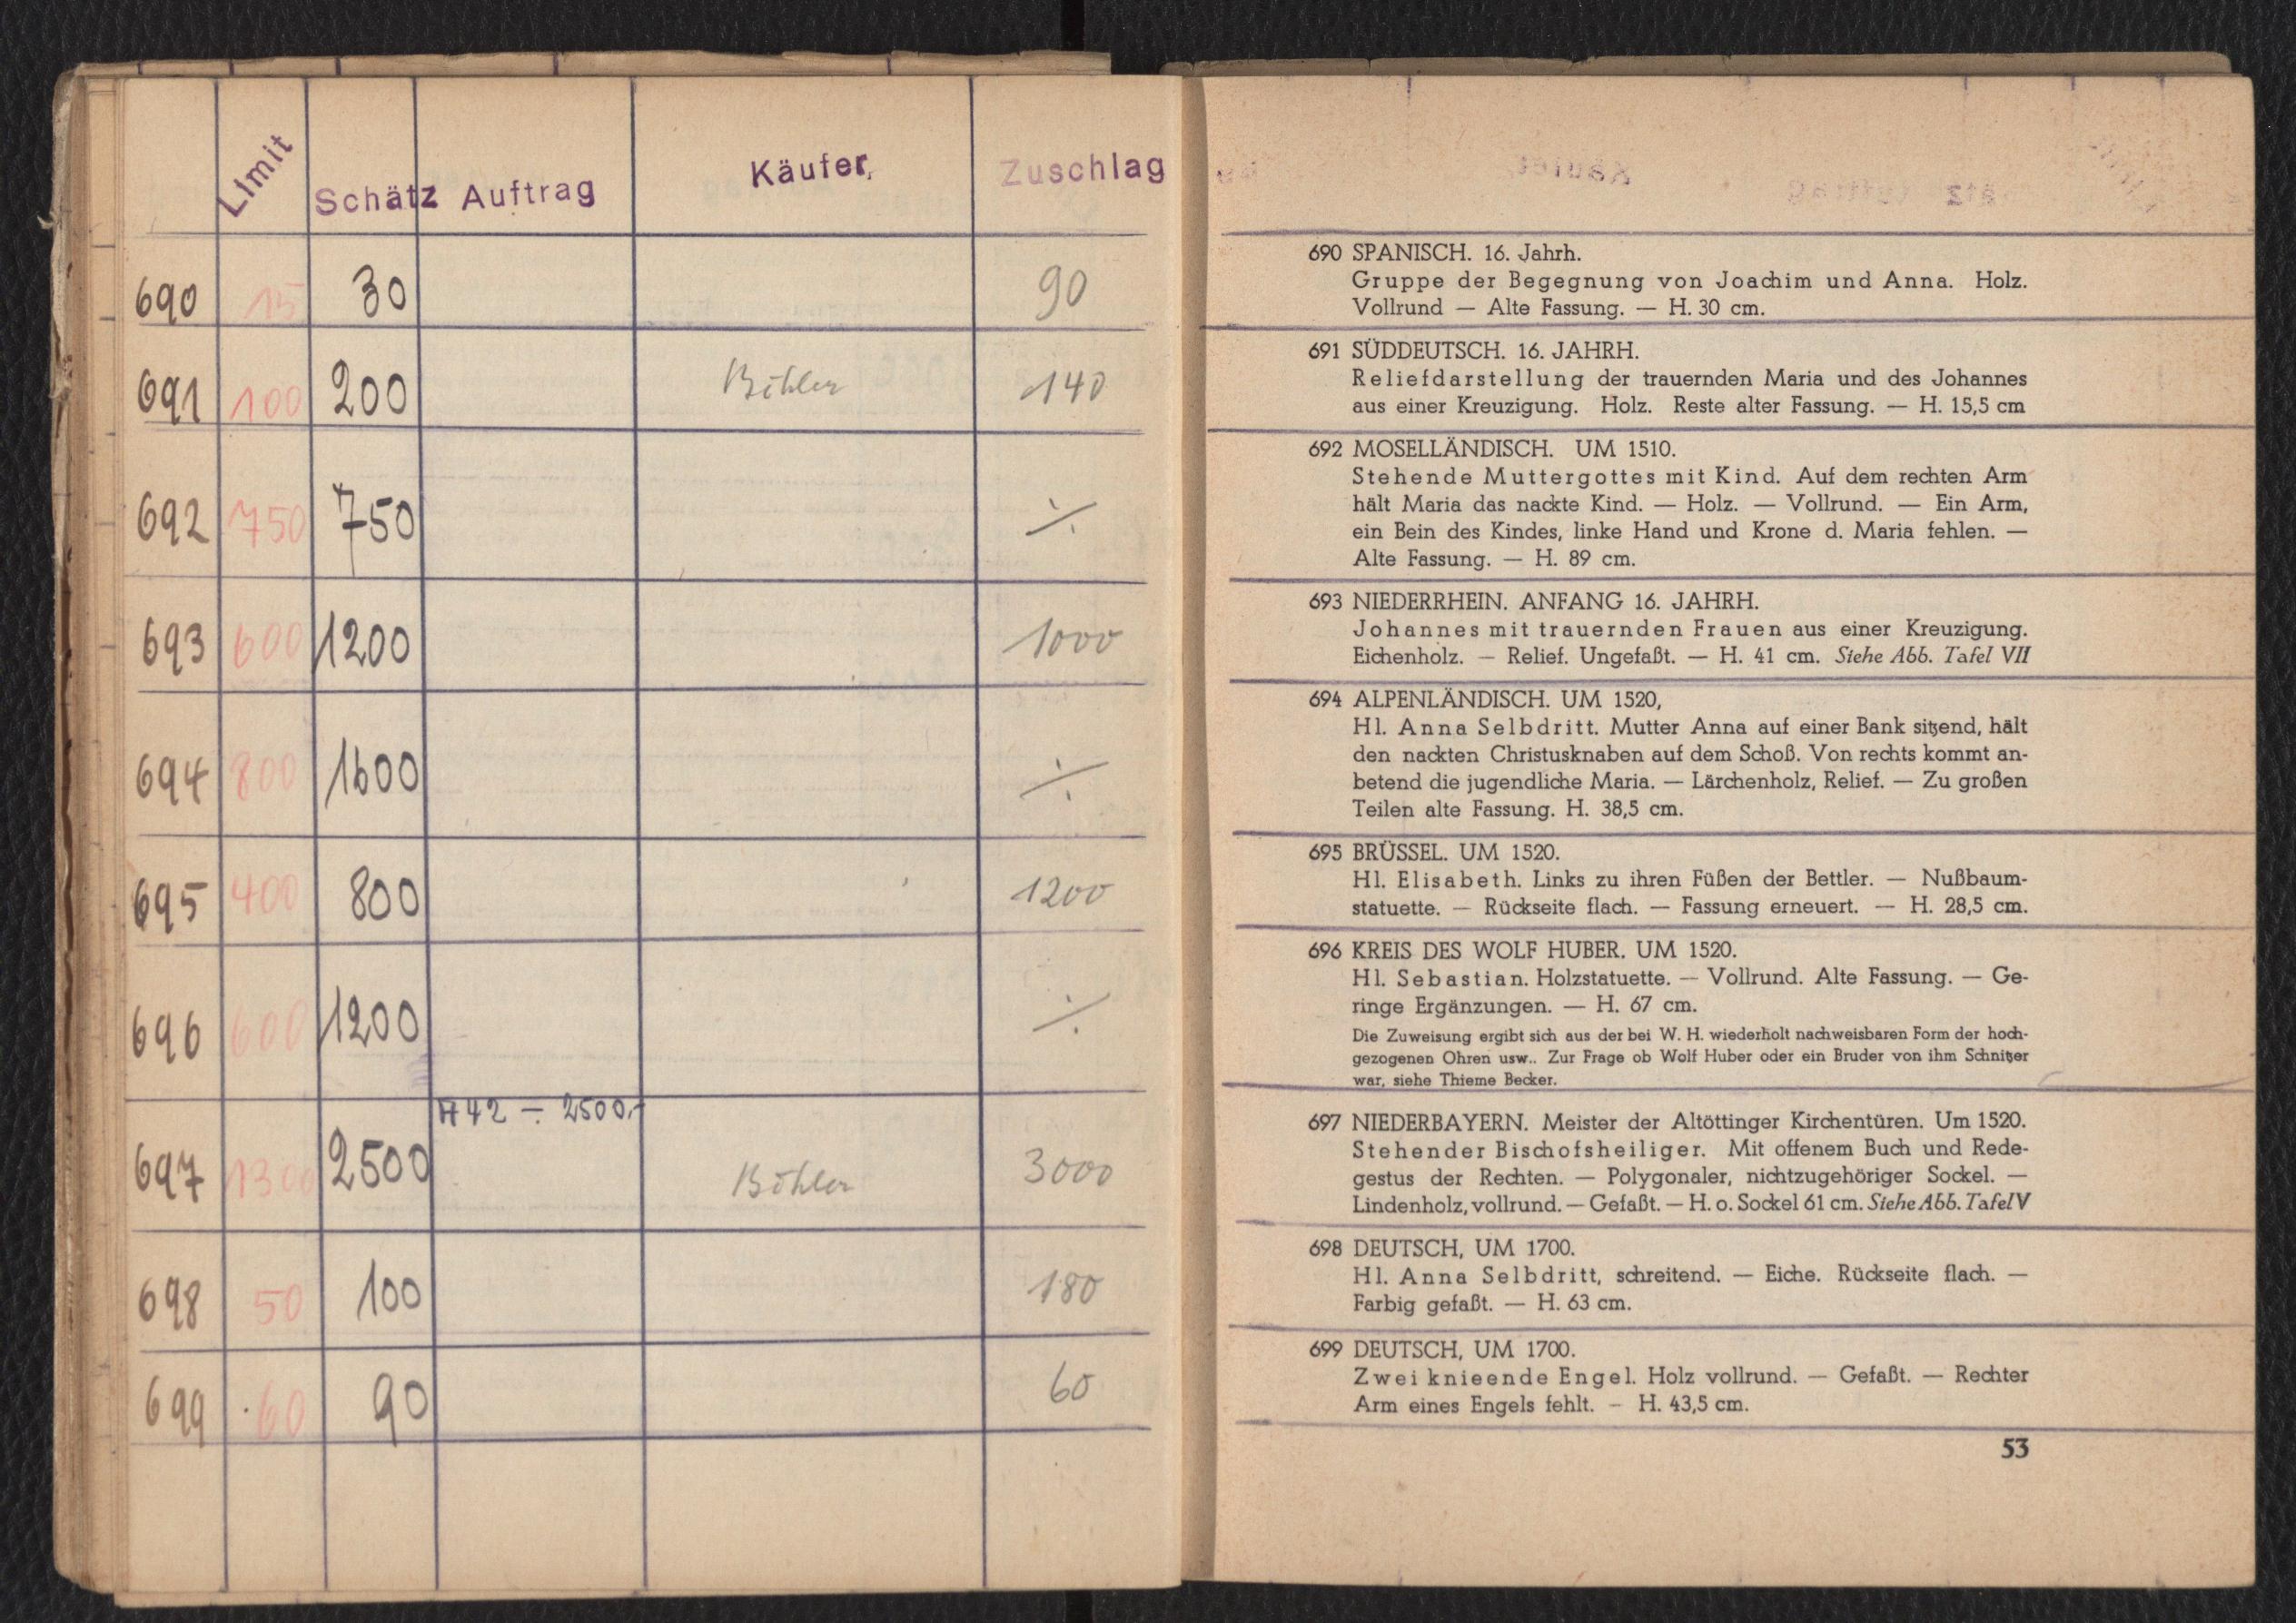 Limit Schätz Auftrag Käufer, Zuschlag
690 15 30 90
691 100 200 Böhler 140
692 750 750 ⁒
693 600 1200 1000
694 800 1600 ⁒
695 400 800 1200
696 600 1200 ⁒
A 42 - 2500,-
697 1300 2500 Böhler 3000
698 50 100 180
699 60 90 60
690 SPANISCH. 16. Jahrh.
Gruppe der Begegnung von Joachim und Anna. Holz.
Vollrund — Alte Fassung. — H. 30 cm.
691 SÜDDEUTSCH. 16. JAHRH.
Reliefdarstellung der trauernden Maria und des Johannes
aus einer Kreuzigung. Holz. Reste alter Fassung. — H. 15,5 cm
692 MOSELLÄNDISCH. UM 1510.
Stehende Muttergottes mit Kind. Auf dem rechten Arm
hält Maria das nackte Kind. — Holz. — Vollrund. — Ein Arm,
ein Bein des Kindes, linke Hand und Krone d. Maria fehlen. —
Alte Fassung. — H. 89 cm.
693 NIEDERRHEIN. ANFANG 16. JAHRH.
Johannes mit trauernden Frauen aus einer Kreuzigung.
Eichenholz. — Relief. Ungefaßt. — H. 41 cm. Siehe Abb. Tafel VII
694 ALPENLÄNDISCH. UM 1520,
Hl. Anna Selbdritt. Mutter Anna auf einer Bank sitzend, hält
den nackten Christusknaben auf dem Schoß. Von rechts kommt an-
betend die jugendliche Maria. — Lärchenholz, Relief. — Zu großen
Teilen alte Fassung. H. 38,5 cm.
695 BRÜSSEL. UM 1520.
Hl. Elisabeth. Links zu ihren Füßen der Bettler. — Nußbaum-
statuette. — Rückseite flach. — Fassung erneuert. — H. 28,5 cm.
696 KREIS DES WOLF HUBER. UM 1520.
Hl. Sebastian. Holzstatuette. — Vollrund. Alte Fassung. — Ge-
ringe Ergänzungen. — H. 67 cm.
Die Zuweisung ergibt sich aus der bei W. H. wiederholt nachweisbaren Form der hoch-
gezogenen Ohren usw.. Zur Frage ob Wolf Huber oder ein Bruder von ihm Schnitzer
war, siehe Thieme Becker.
697 NIEDERBAYERN. Meister der Altöttinger Kirchentüren. Um 1520.
Stehender Bischofsheiliger. Mit offenem Buch und Rede-
gestus der Rechten. — Polygonaler, nichtzugehöriger Sockel. —
Lindenholz, vollrund. — Gefaßt. — H. o. Sockel 61 cm. Siehe Abb. Tafel V
698 DEUTSCH, UM 1700.
Hl. Anna Selbdritt, schreitend. — Eiche. Rückseite flach. —
Farbig gefaßt. — H. 63 cm.
699 DEUTSCH, UM 1700.
Zwei knieende Engel. Holz vollrund. — Gefaßt. — Rechter
Arm eines Engels fehlt. – H. 43,5 cm.
53